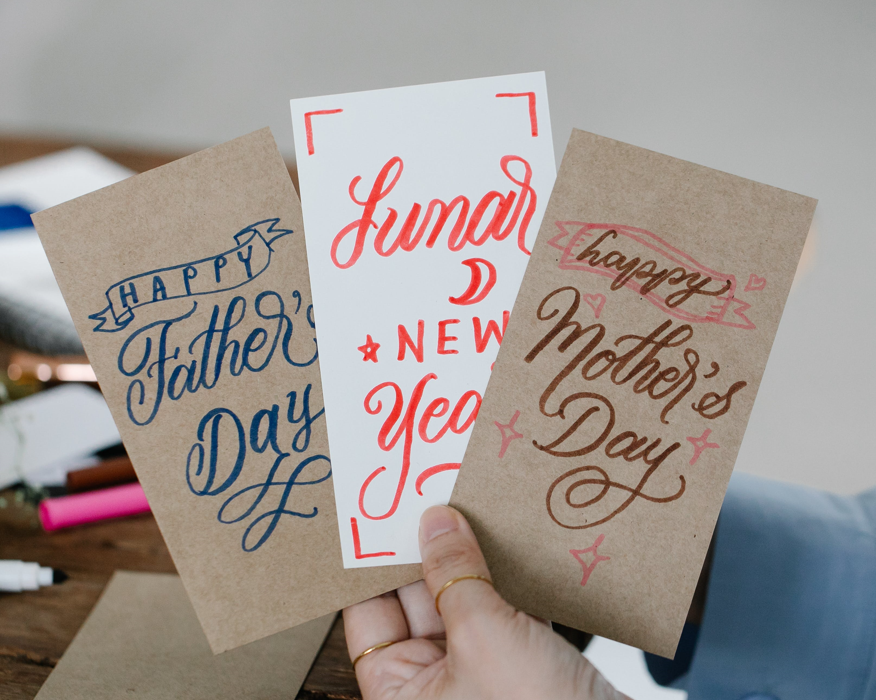 HAPPY
Father's
Day
Lunar
NEW
Yea
happy
Mother's
Day